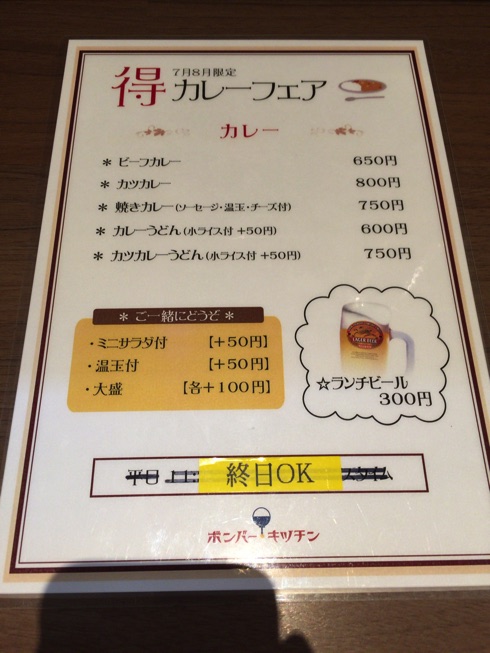 7月8月限定
得 カレーフェア
カレー
＊ ビーフカレー 650円
＊ カツカレー 800円
＊ 焼きカレー(ソーセージ・温玉・チーズ付) 750円
＊ カレーうどん(小ライス付 +50円) 600円
＊ カツカレーうどん(小ライス付 +50円) 750円
＊ ご一緒にどうぞ ＊
・ミニサラダ付 【+50円】
・温玉付 【+50円】
・大盛 【各+100円】
LAGER BEER
☆ランチビール
300円
平日 終日OK
ボンバーキッチン